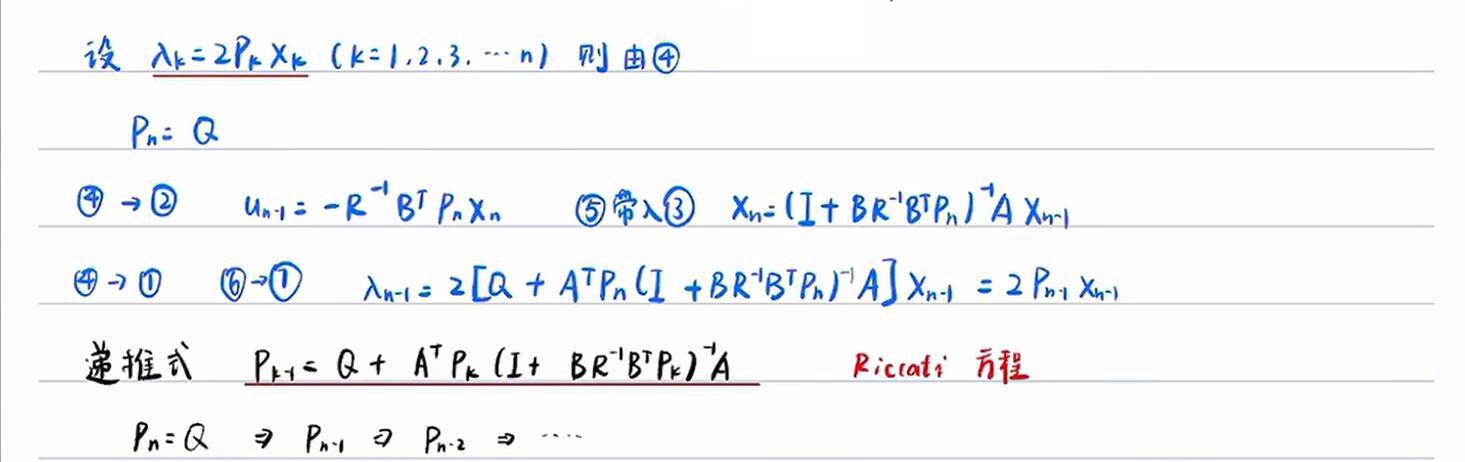 设 λₖ=2PₖXₖ (k=1,2,3,…n) 则由④
Pₙ= Q
④→② uₙ₋₁=-R⁻¹BᵀPₙXₙ ⑤带入③ Xₙ=(I+BR⁻¹BᵀPₙ)⁻¹AXₙ₋₁
④→① ⑥→⑦ λₙ₋₁=2[Q+AᵀPₙ(I+BR⁻¹BᵀPₙ)⁻¹A]Xₙ₋₁=2Pₙ₋₁Xₙ₋₁
递推式 Pₖ₋₁=Q+AᵀPₖ(I+BR⁻¹BᵀPₖ)⁻¹A Riccati 方程
Pₙ=Q ⇒ Pₙ₋₁ ⇒ Pₙ₋₂ ⇒ ····